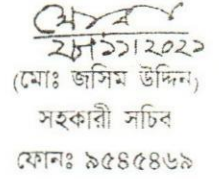 ২৮/১১/২০২১
(মোঃ জসিম উদ্দিন)
সহকারী সচিব
ফোনঃ ৯৫৪৫৪৬৯